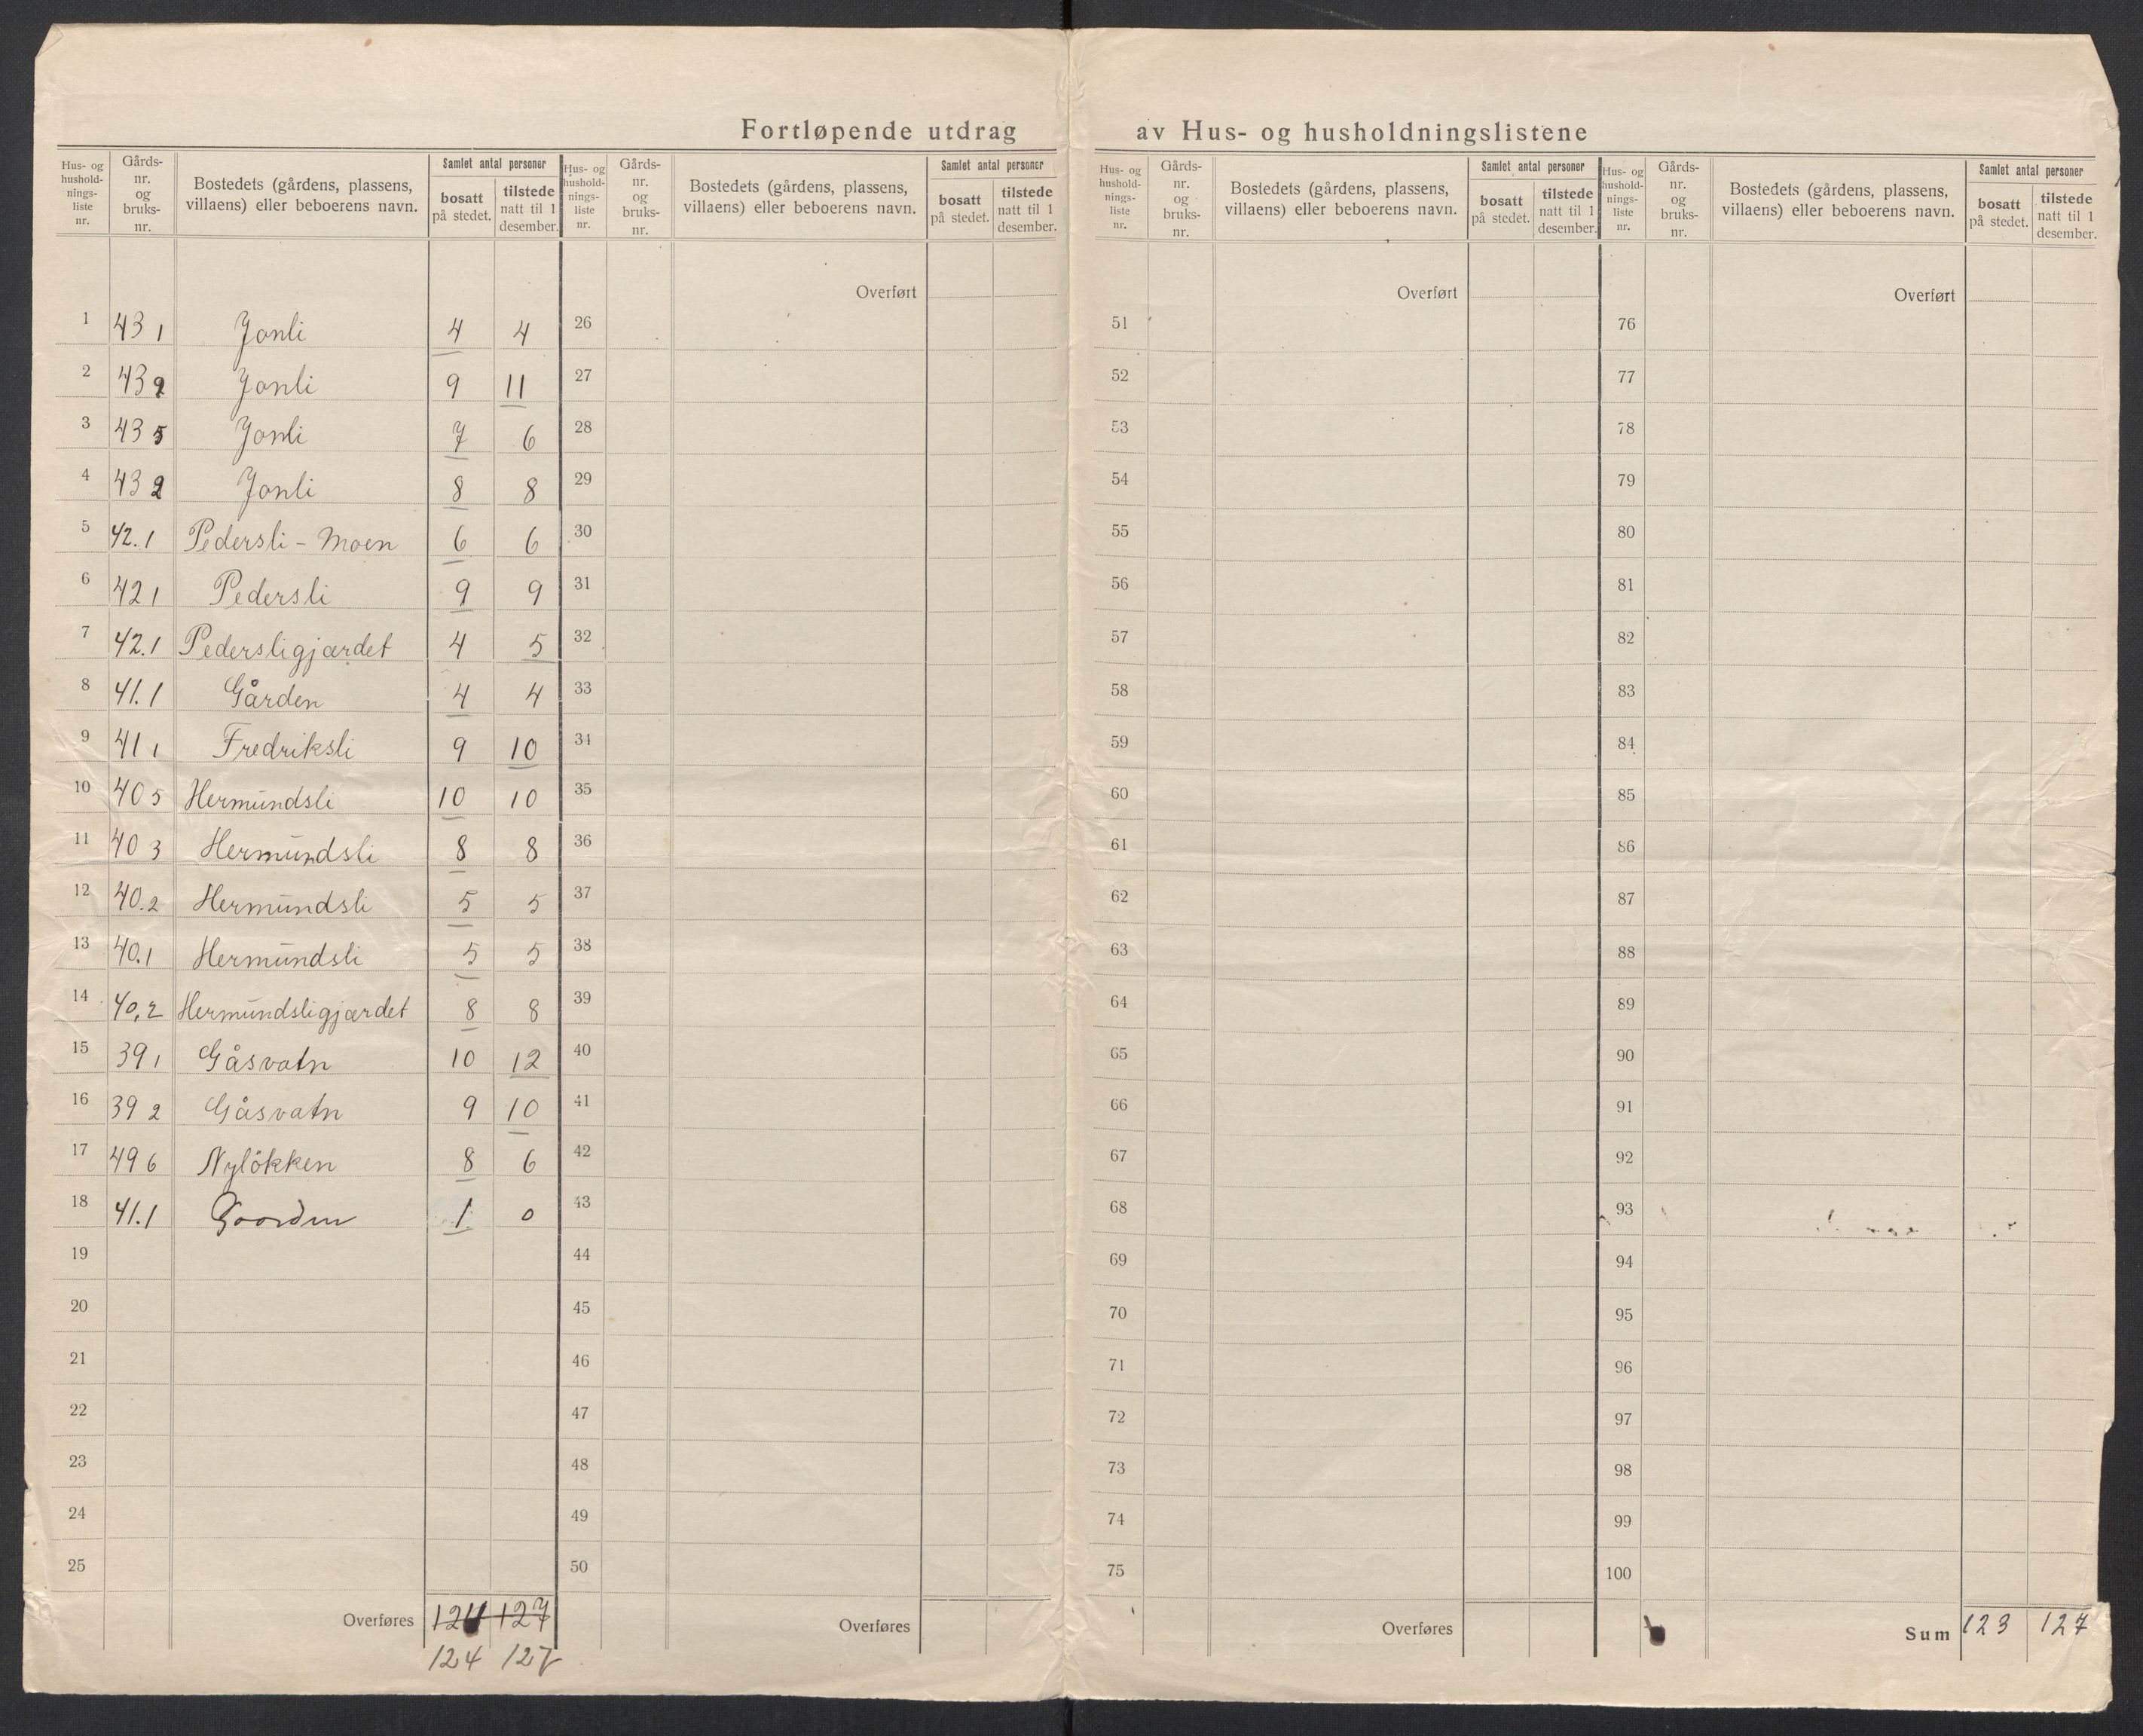 Fortløpende utdrag av Hus- og husholdningslistene
Hus- og husholdningsliste nr. | Gårdsnr. og bruksnr. | Bostedets (gårdens, plassens, villaens) eller beboerens navn. | Samlet antal personer | bosatt på stedet. | tilstede natt til 1 desember.
Hus- og husholdningsliste nr. | Gårdsnr. og bruksnr. | Bostedets (gårdens, plassens, villaens) eller beboerens navn. | Samlet antal personer | bosatt på stedet. | tilstede natt til 1 desember.
Hus- og husholdningsliste nr. | Gårdsnr. og bruksnr. | Bostedets (gårdens, plassens, villaens) eller beboerens navn. | Samlet antal personer | bosatt på stedet. | tilstede natt til 1 desember.
Hus- og husholdningsliste nr. | Gårdsnr. og bruksnr. | Bostedets (gårdens, plassens, villaens) eller beboerens navn. | Samlet antal personer | bosatt på stedet. | tilstede natt til 1 desember.
Overført Overført Overført
1 43 1 Jonli 4 4 26 51 76
2 43 Jonli 9 11 27 52 77
3 43 5 Jonli 7 6 28 53 78
4 43 2 Jonli 8 8 29 54 79
5 42.1 Pedersli - Moen 6 6 30 55 80
6 42 1 Pedersli 9 9 31 56 81
7 42.1 Pedersligjærdet 4 5 32 57 82
8 41.1 Gården 4 4 33 58 83
9 41 1 Fredriksli 9 10 34 59 84
10 40 5 Hermundsli 10 10 35 60 85
11 40 3 Hermundsli 8 8 36 61 86
12 40.2 Hermundsli 5 5 37 62 87
13 40.1 Hermundsli 5 5 38 63 88
14 40,2 Hermundsligjærdet 8 8 39 64 89
15 39 1 Gåsvatn 10 12 40 65 90
16 39 2 Gåsvatn 9 10 41 66 91
17 49 6 Nylökken 8 6 42 67 92
18 41.1 Gaarden 1 0 43 68 93
19 44 69 94
20 45 70 95
21 46 71 96
22 47 72 97
23 48 73 98
24 49 74 99
25 50 75 100
Overføres 127 Overføres Overføres Sum 123 127
124 127